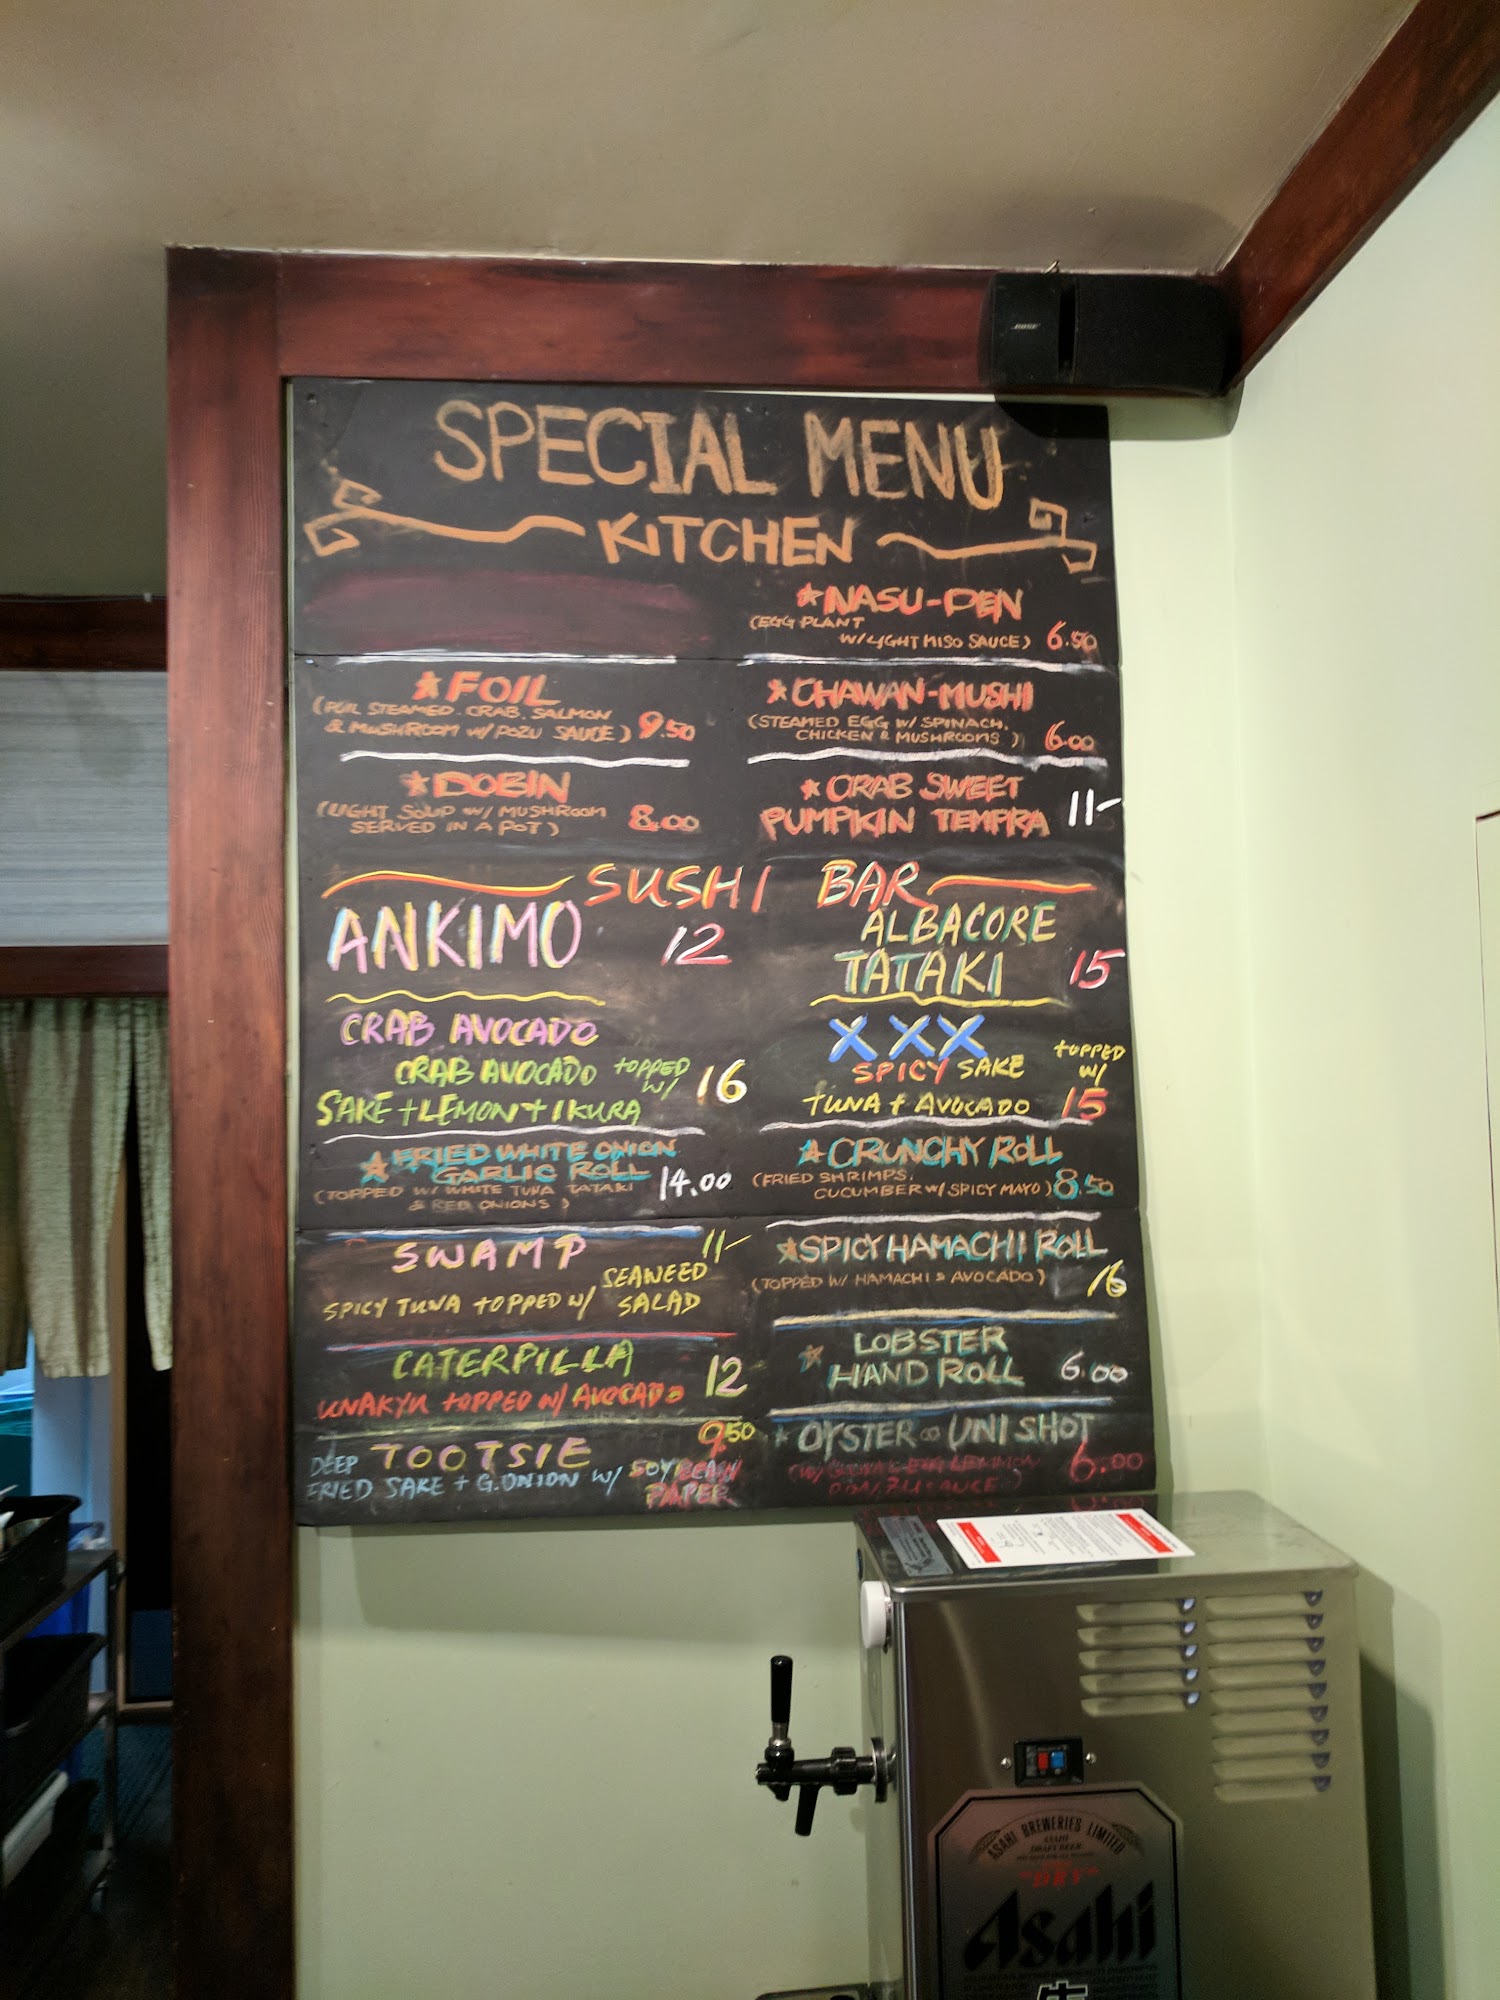 BOSE
SPECIAL MENU
KITCHEN
★NASU-DEN
(EGG PLANT
W/LIGHT MISO SAUCE) 6.50
★FOIL
(FOIL STEAMED. CRAB. SALMON
& MUSHROOM W/ POZU SAUCE) 9.50
★CHAWAN-MUSHI
(STEAMED EGG W/ SPINACH,
CHICKEN & MUSHROOMS) 6.00
★DOBIN
(LIGHT SOUP W/ MUSHROOM
SERVED IN A POT) 8.00
★CRAB SWEET
PUMPKIN TEMPRA 11-
SUSHI BAR
ANKIMO 12
ALBACORE
TATAKI 15
CRAB AVOCADO
CRAB AVOCADO TOPPED
W/ 16
SAKE + LEMON + IKURA
XXX
SPICY SAKE TOPPED
W/
TUNA + AVOCADO 15
★FRIED WHITE ONION
GARLIC ROLL 14.00
(TOPPED W/ WHITE TUNA TATAKI
& RED ONIONS)
★CRUNCHY ROLL
(FRIED SHRIMPS,
CUCUMBER W/ SPICY MAYO) 8.50
SWAMP 11-
SPICY TUNA TOPPED W/ SEAWEED
SALAD
★SPICY HAMACHI ROLL
(TOPPED W/ HAMACHI & AVOCADO) 16
CATERPILLA 12
UNAKYU TOPPED W/ AVOCADO
★LOBSTER
HAND ROLL 6.00
TOOTSIE 9.50
DEEP
FRIED SAKE + G.ONION W/ SOYBEAN
PAPER
★OYSTER UNI SHOT
6.00
ASAHI BREWERIES LIMITED
ASAHI
DRAFT BEER
Asahi
生